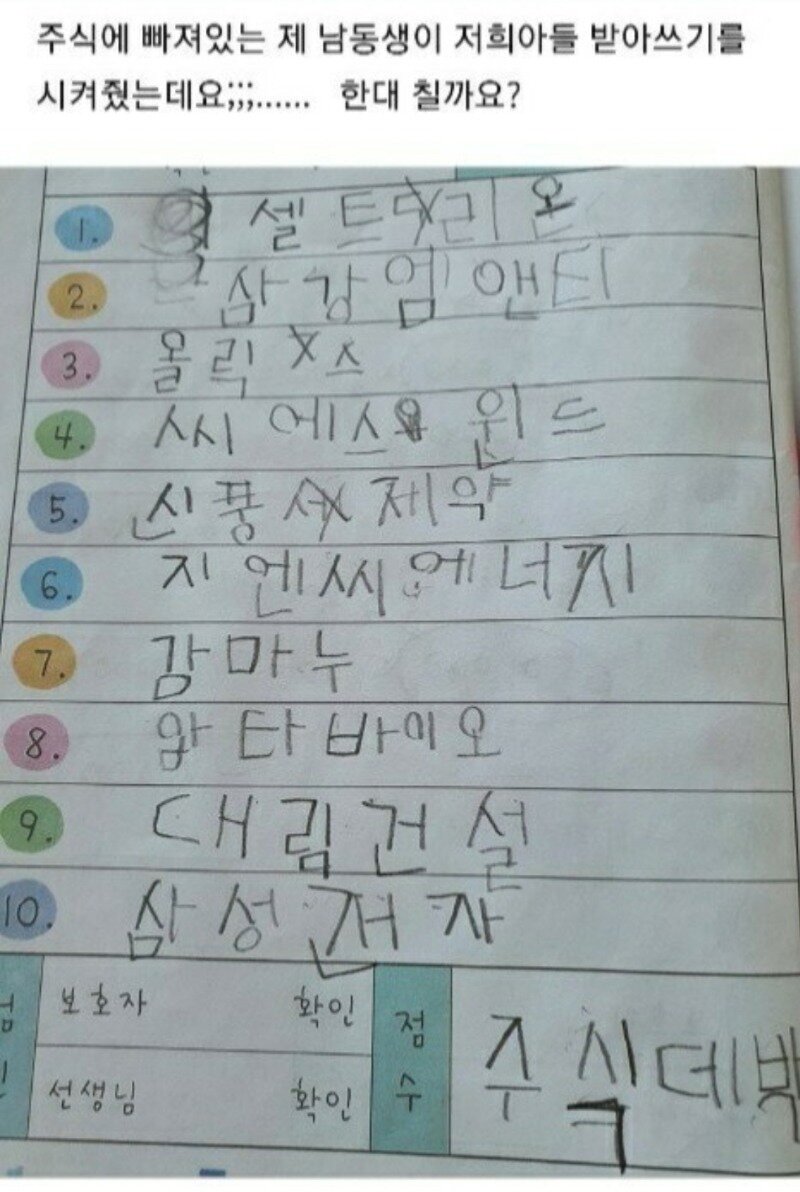 주식에 빠져있는 제 남동생이 저희아들 받아쓰기를
시켜줬는데요;;;...... 한대 칠까요?
1. 셀트리온
2. 삼강엠앤티
3. 올릭스
4. 씨에스윈드
5. 신풍제약
6. 지엔씨에너지
7. 감마누
8. 압타바이오
9. 대림건설
10. 삼성전자
보호자 확인
점
수
주식데박
선생님 확인